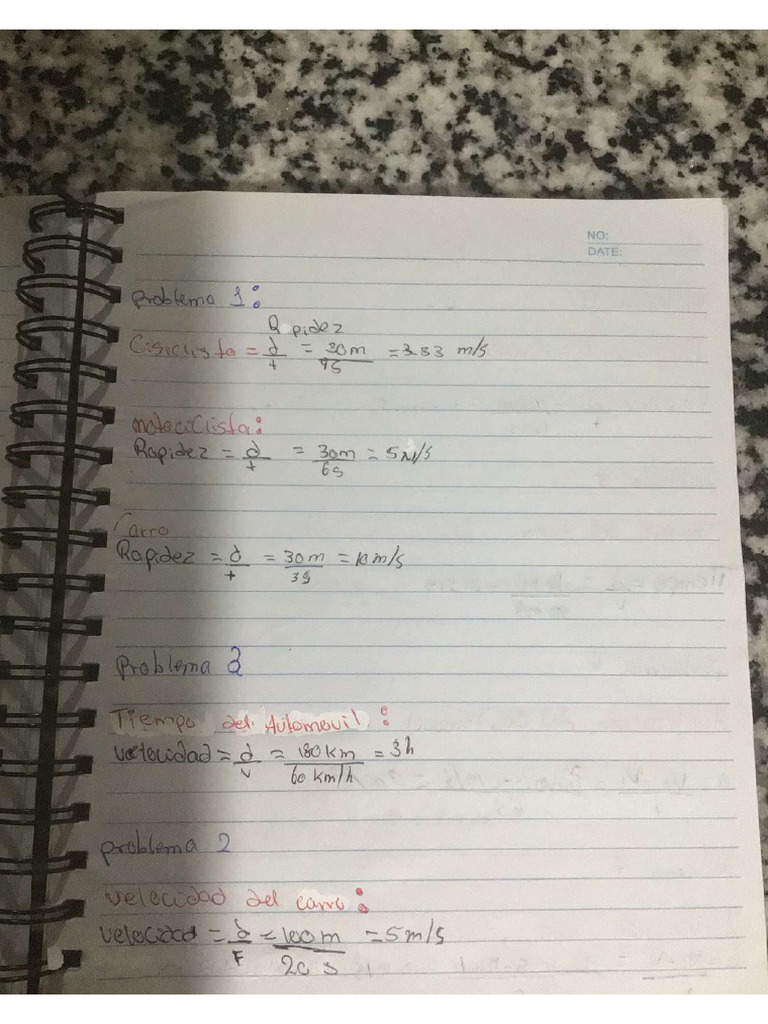 NO:
DATE:
Problema 1:
Rapidez
Cisiclista = d/t = 30m/9s = 3.33 m/s
motociclista:
Rapidez = d/t = 30m/6s = 5 M/s
Carro
Rapidez = d/t = 30m/3s = 10m/s
Problema 3
Tiempo del Automovil:
velocidad = d/v = 180 km/60 km/h = 3h
Problema 2
velocidad del carro:
velocidad = d/t = 100m/20 s = 5m/s